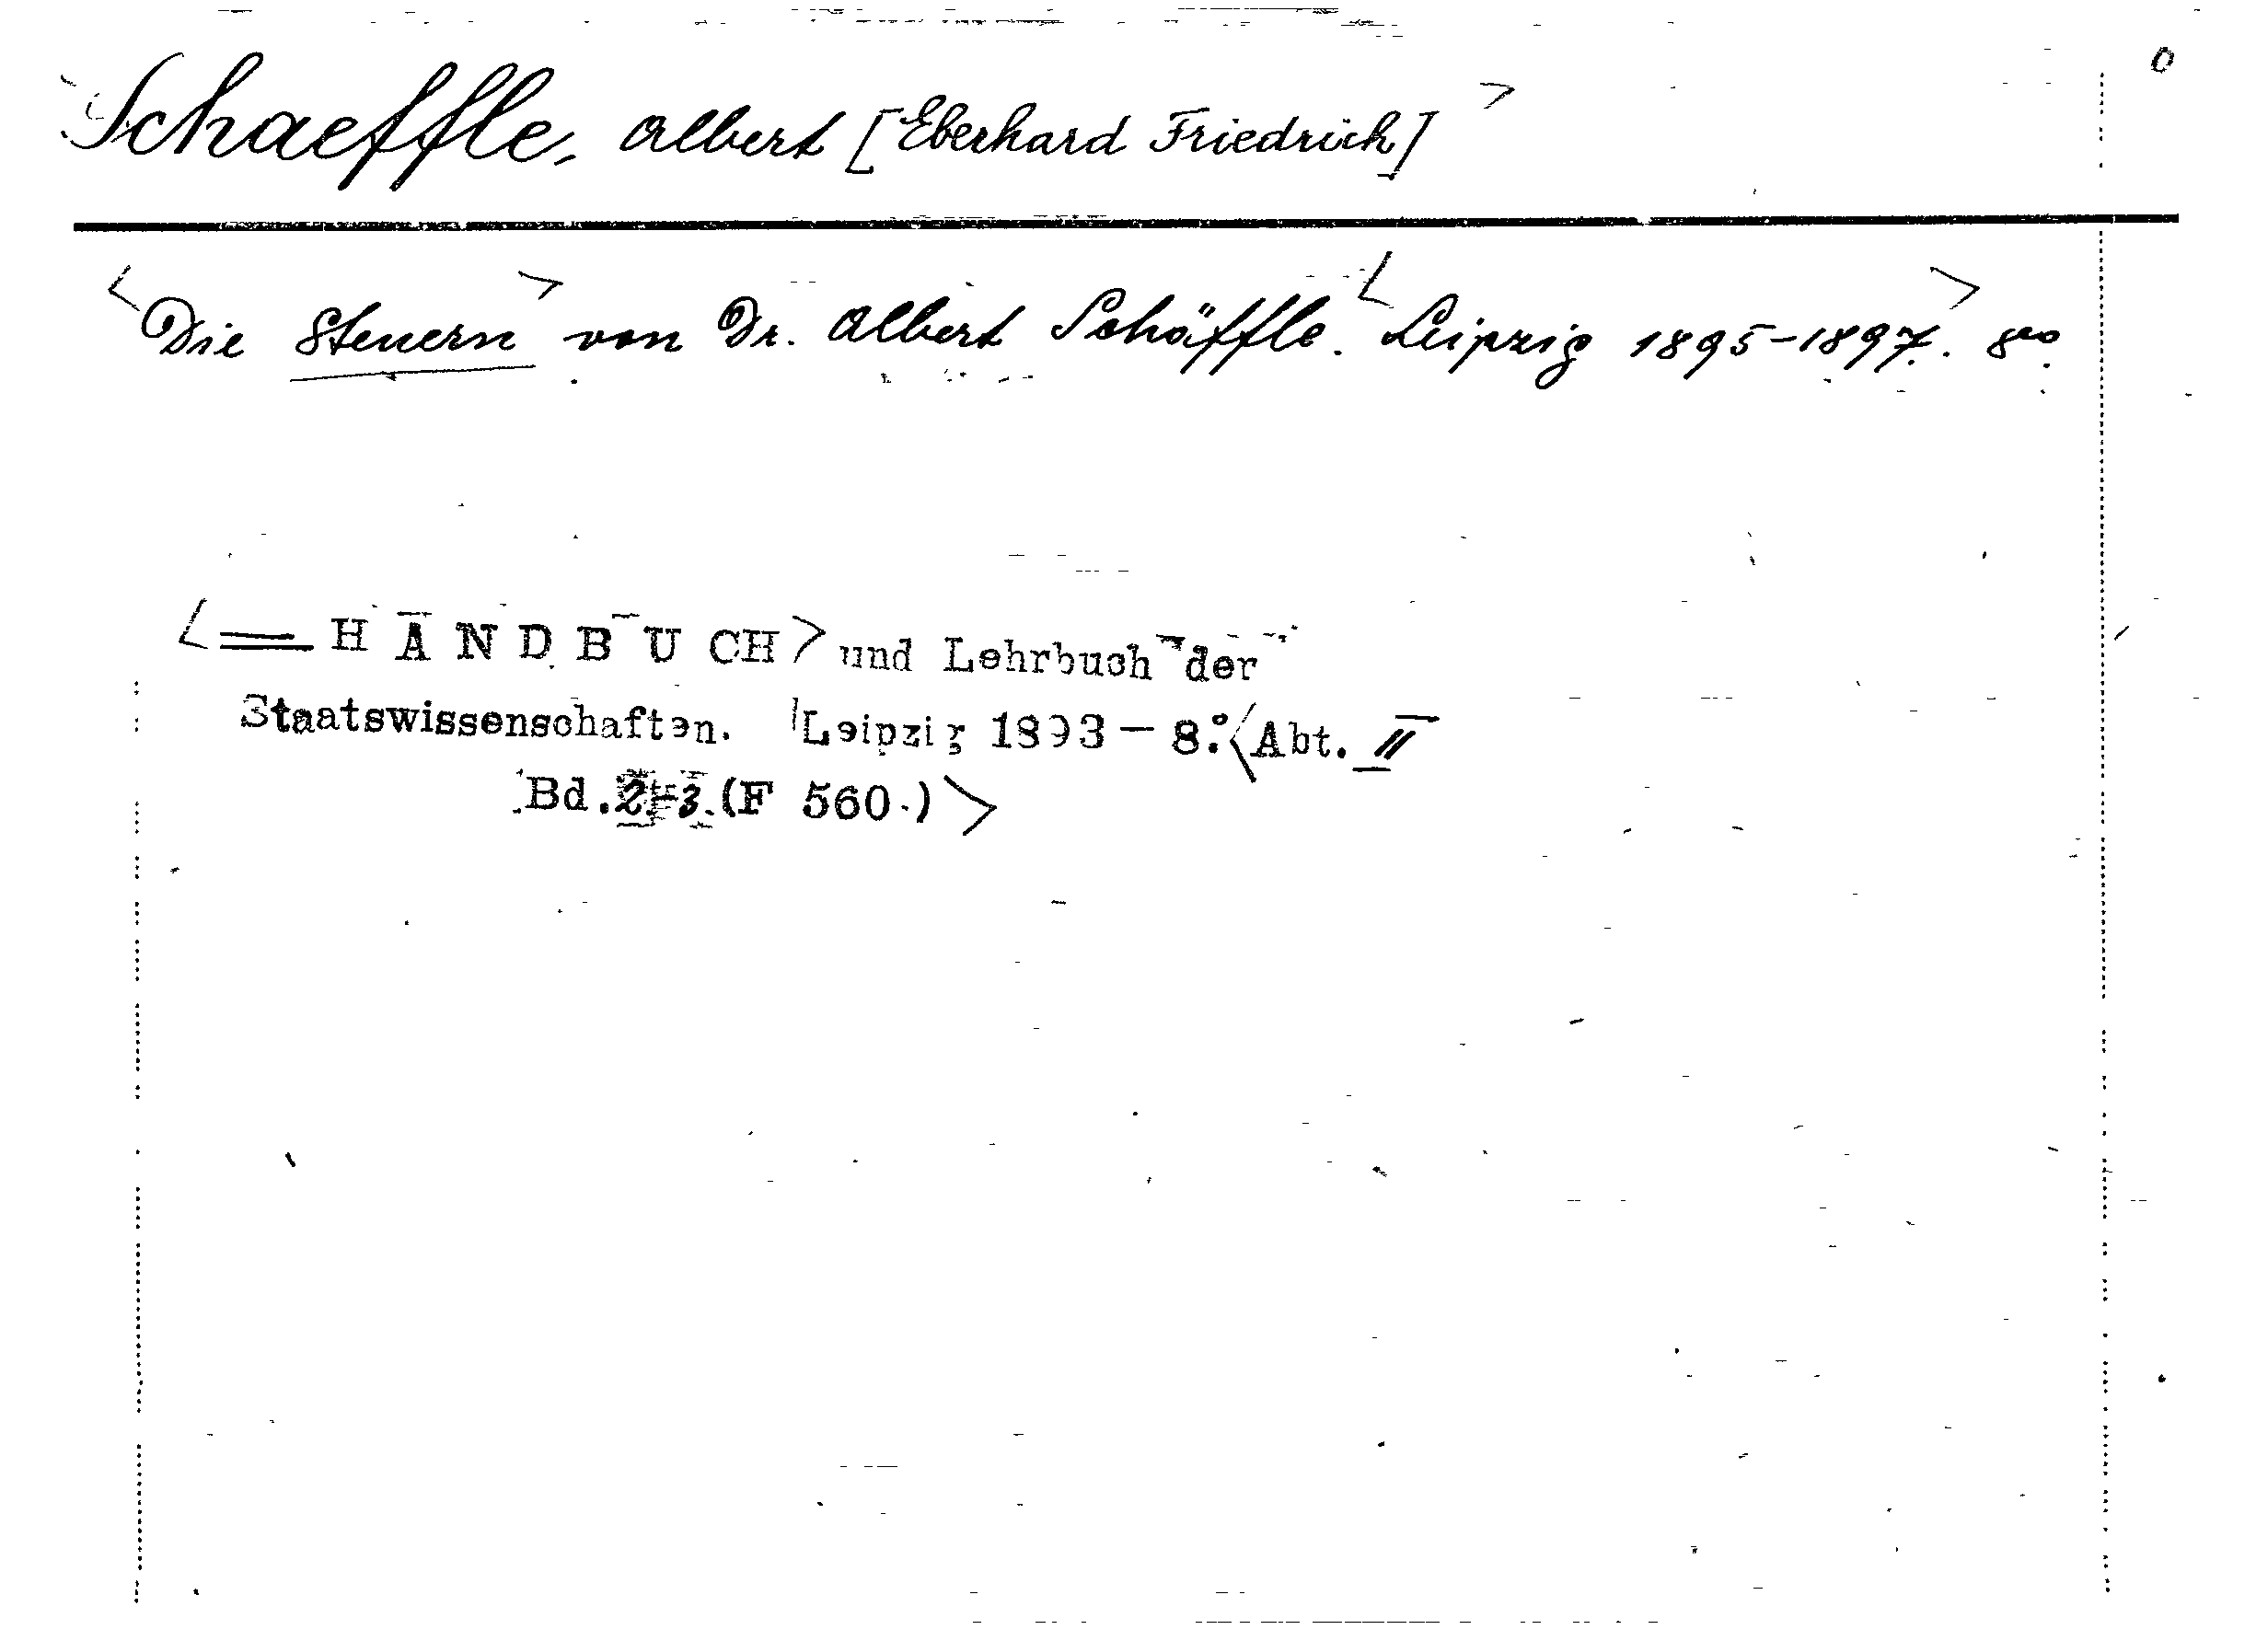 Schaeffle, Albert [Eberhard Friedrich]
0
Die Steuern von Dr. Albert Schäffle. Leipzig 1895-1897. 8vo.
= HANDBUCH und Lehrbuch der
Staatswissenschaften. Leipzig 1893 - 8º. Abt. II
Bd. 2-3. (F 560.)